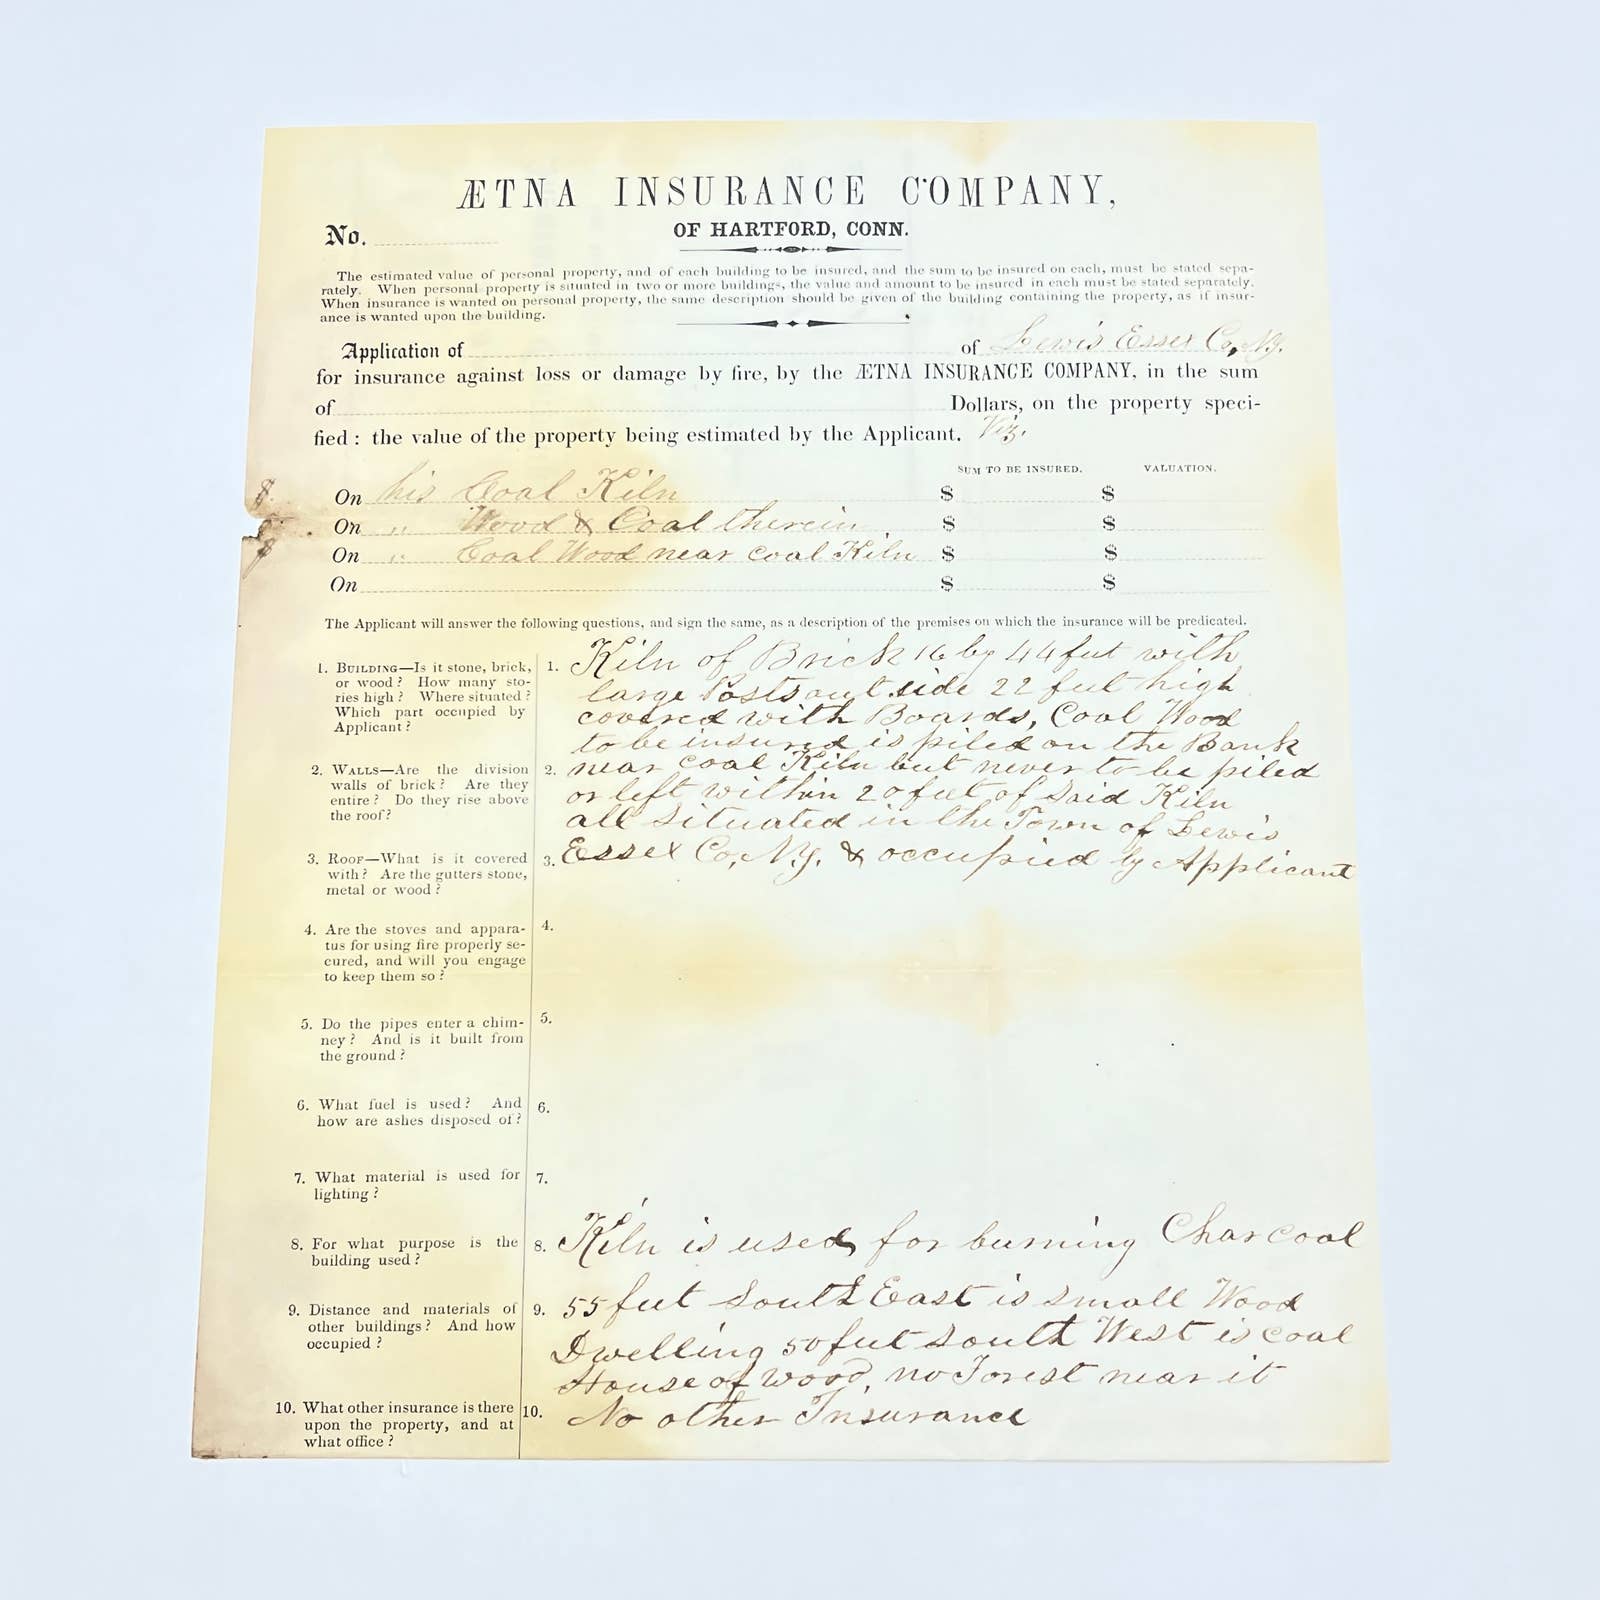 ÆTNA INSURANCE COMPANY,
OF HARTFORD, CONN.
No.
The estimated value of personal property, and of each building to be insured, and the sum to be insured on each, must be stated sepa-
rately. When personal property is situated in two or more buildings, the value and amount to be insured in each must be stated separately.
When insurance is wanted on personal property, the same description should be given of the building containing the property, as if insur-
ance is wanted upon the building.
Application of of Lewis Essex Co, N.Y.
for insurance against loss or damage by fire, by the ÆTNA INSURANCE COMPANY, in the sum
of Dollars, on the property speci-
fied: the value of the property being estimated by the Applicant. Viz.
SUM TO BE INSURED. VALUATION.
$ On his Coal Kiln $ $
$ On " Wood & Coal therein $ $
$ On " Coal Wood near coal Kiln $ $
On $ $
The Applicant will answer the following questions, and sign the same, as a description of the premises on which the insurance will be predicated.
1. BUILDING—Is it stone, brick,
or wood? How many sto-
ries high? Where situated?
Which part occupied by
Applicant?
1. Kiln of Brick 16 by 44 feet with
large Posts out side 22 feet high
covered with Boards, Coal Wood
to be insured is piled on the Bank
2. WALLS—Are the division
walls of brick? Are they
entire? Do they rise above
the roof?
2. near coal Kiln but never to be piled
or left within 20 feet of Said Kiln
all situated in the Town of Lewis
3. ROOF—What is it covered
with? Are the gutters stone,
metal or wood?
3. Essex Co, N.Y. & occupied by Applicant
4. Are the stoves and appara-
tus for using fire properly se-
cured, and will you engage
to keep them so?
4.
5. Do the pipes enter a chim-
ney? And is it built from
the ground?
5.
6. What fuel is used? And
how are ashes disposed of?
6.
7. What material is used for
lighting?
7.
8. For what purpose is the
building used?
8. Kiln is used for burning Charcoal
9. Distance and materials of
other buildings? And how
occupied?
9. 55 feet South East is small Wood
Dwelling 50 feet South West is coal
House of wood, no Forest near it
10. What other insurance is there
upon the property, and at
what office?
10. No other Insurance